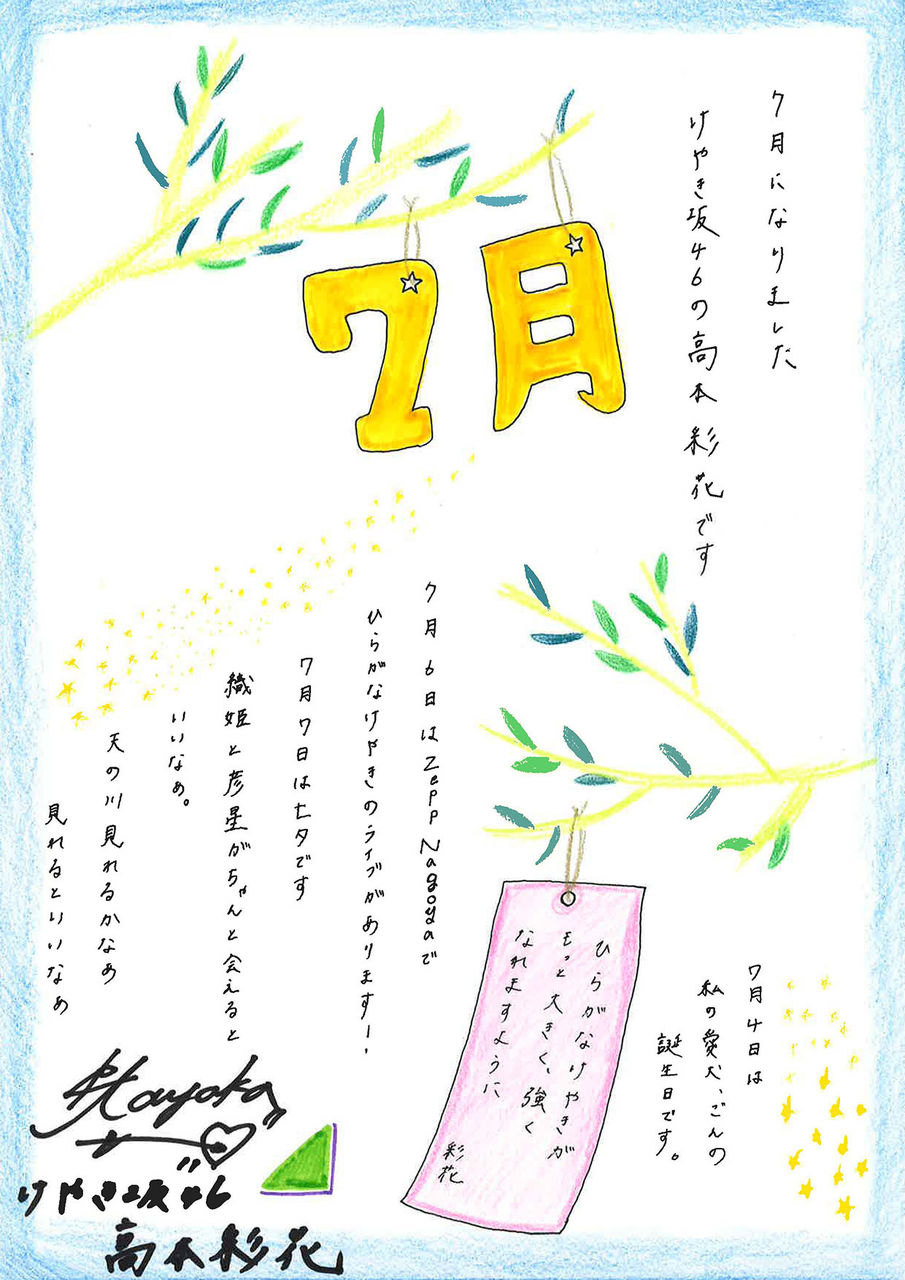 7月になりました
けやき坂46の高本彩花です
7月
7月4日は
私の愛犬、ごんの
誕生日です。
ひらがなけやきが
もっと大きく、強く
なれますように
彩花
7月6日はZepp Nagoyaで
ひらがなけやきのライブがあります!!
7月7日は七夕です
織姫と彦星がちゃんと会えると
いいなぁ。
天の川見れるかなぁ
見れるといいなぁ
Ayaka
けやき坂46
高本彩花